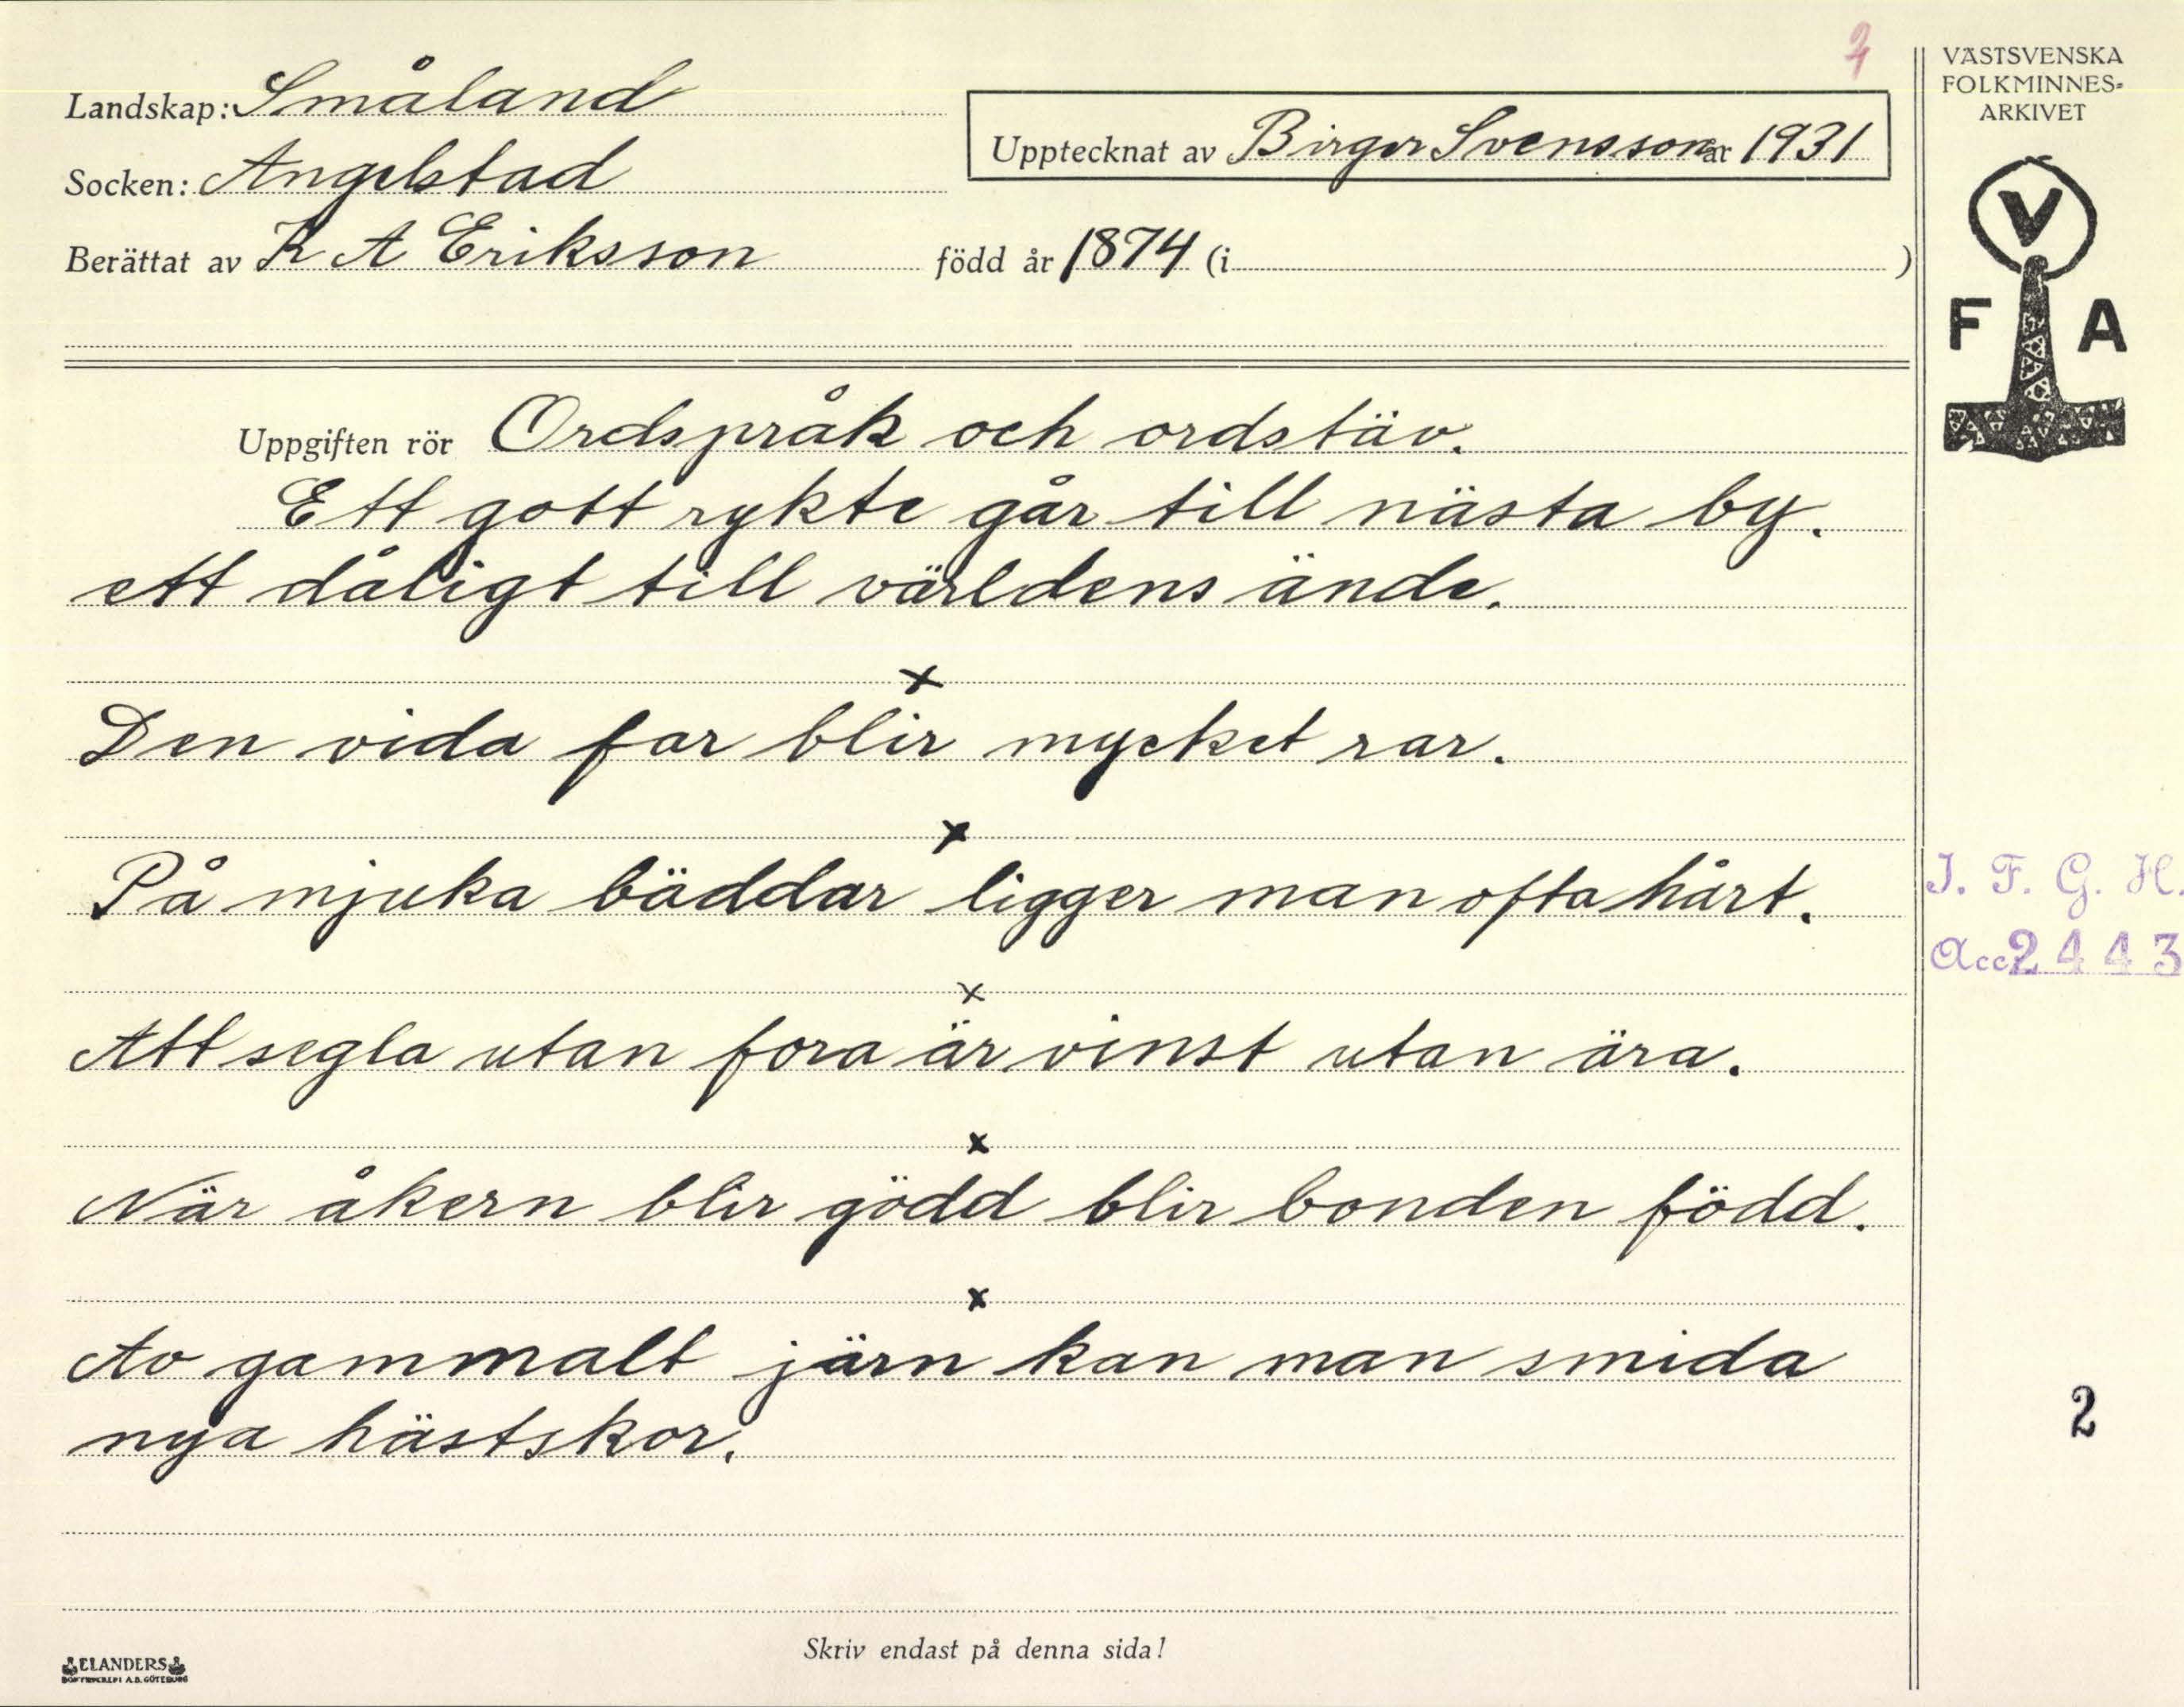 Landskap: Småland
Socken: Angelstad
Berättat av K A Eriksson född år 1874 (i )
Upptecknat av Birger Svensson år 1931
VÄSTSVENSKA
FOLKMINNES-
ARKIVET
V
F A
Uppgiften rör Ordspråk och ordstäv.
Ett gott rykte går till nästa by.
ett dåligt till världens ände.
x
Den vida far blir mycket rar.
x
På mjuka bäddar ligger man ofta hårt.
x
Att segla utan fora är vinst utan ära.
x
När åkern blir gödd blir bonden född.
x
Av gammalt järn kan man smida
nya hästskor.
I. F. G. H.
Acc 2443
2
Skriv endast på denna sida!
ELANDERS
A.B. GÖTEBORG